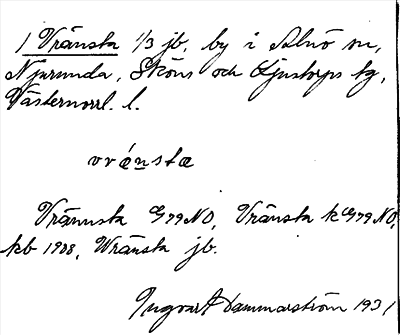 1 Vränsta 1/3 jb, by i Alnö sn,
Njurunda, Sköns och Ljustorps tg,
Västernorrl. l.
vrǻnsta
Vrännsta G79NO, Vränsta k G79NO,
kb 1908, Wränsta jb.
Ingvar Hammarström 1931